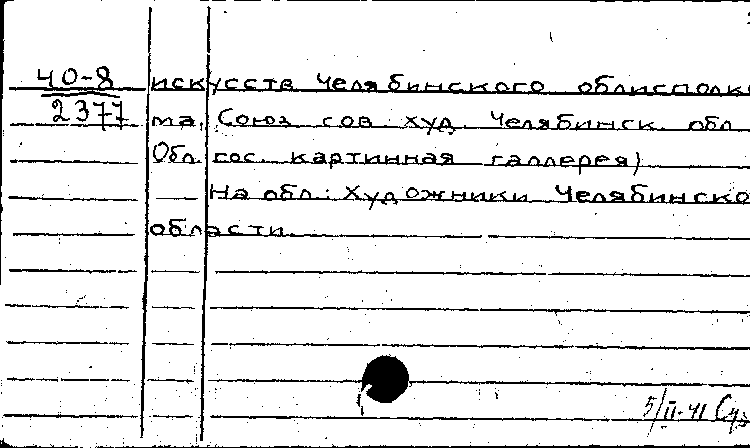 40-8 искусств Челябинского облисполко
2377 та, Союз сов худ. Челябинск. обл
Обл гос. картинная галлерея)
На обл.: Художники Челябинско
области.
5/II-41